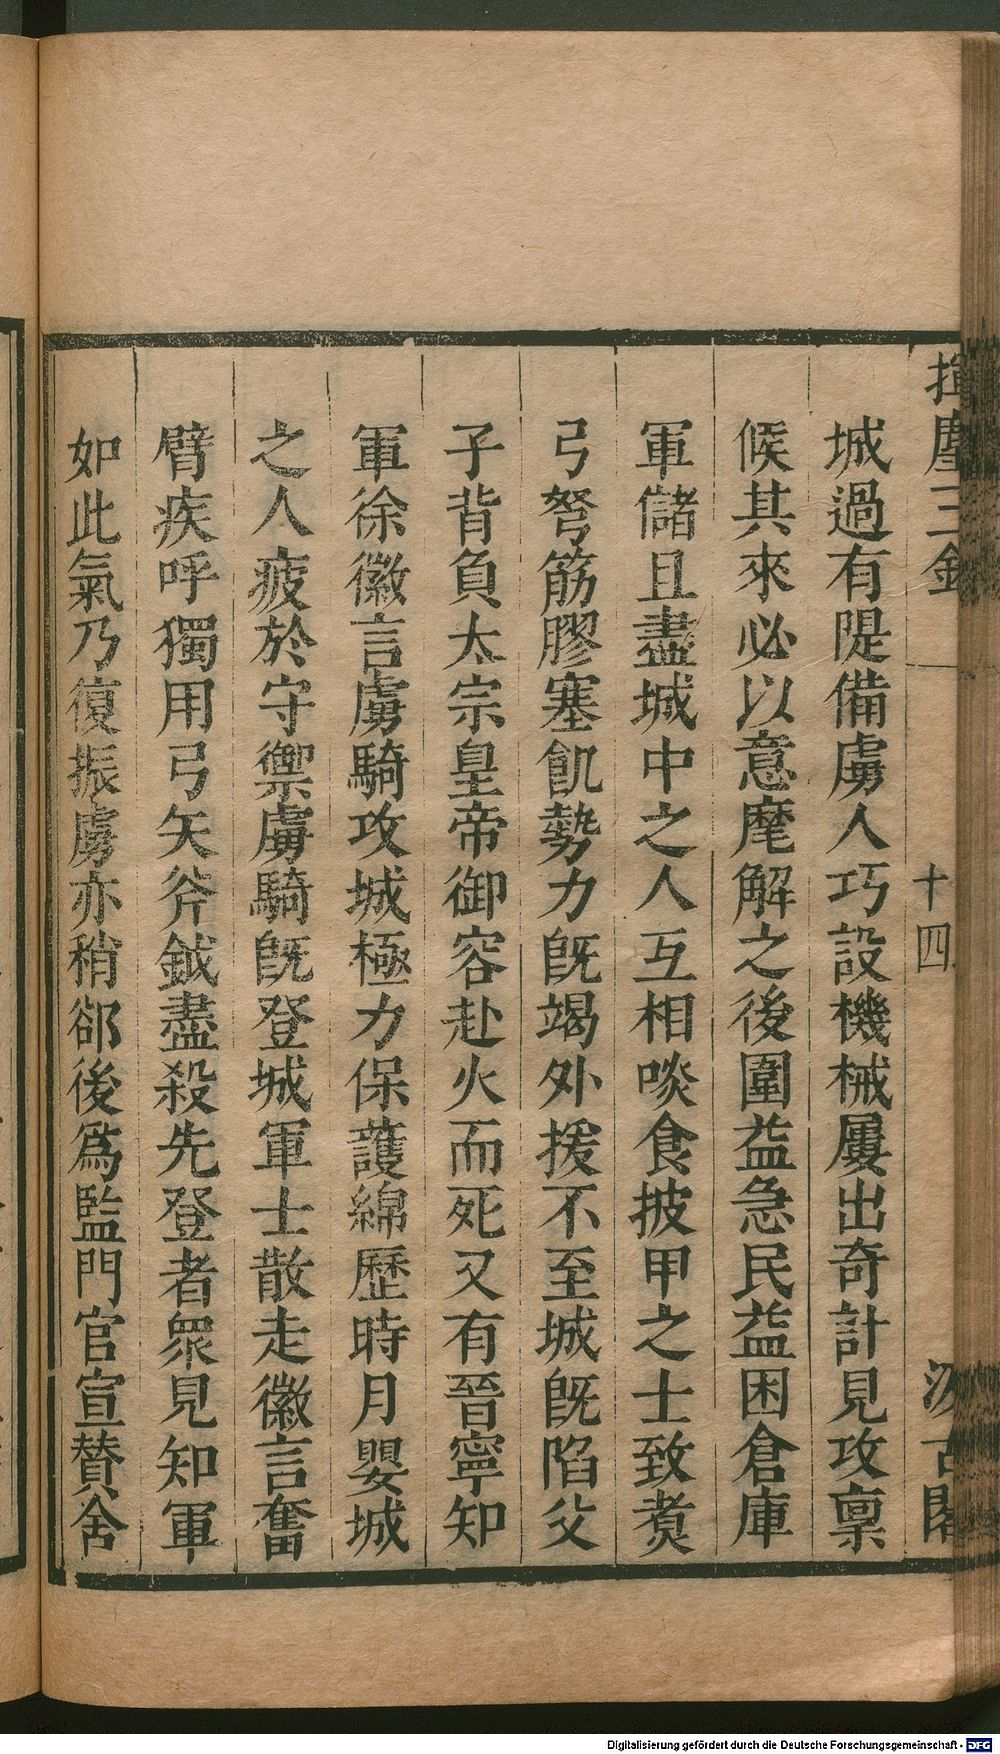 揮麈三錄
十四
汲古閣
城過有隄備虜人巧設機械屢出奇計見攻稟
候其來必以意麾解之後圍益急民益困倉庫
軍儲且盡城中之人互相啖食披甲之士致煑
弓弩筋膠塞飢勢力旣竭外援不至城旣陷父
子背負太宗皇帝御容赴火而死又有晉寧知
軍徐徽言虜騎攻城極力保護綿歷時月嬰城
之人疲於守禦虜騎旣登城軍士散走徽言奮
臂疾呼獨用弓矢斧鉞盡殺先登者衆見知軍
如此氣乃復振虜亦稍郤後爲監門官宣贊舍
Digitalisierung gefördert durch die Deutsche Forschungsgemeinschaft - DFG